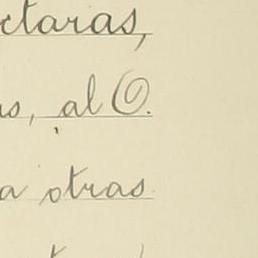 ctaras,
s, al O.
a otras